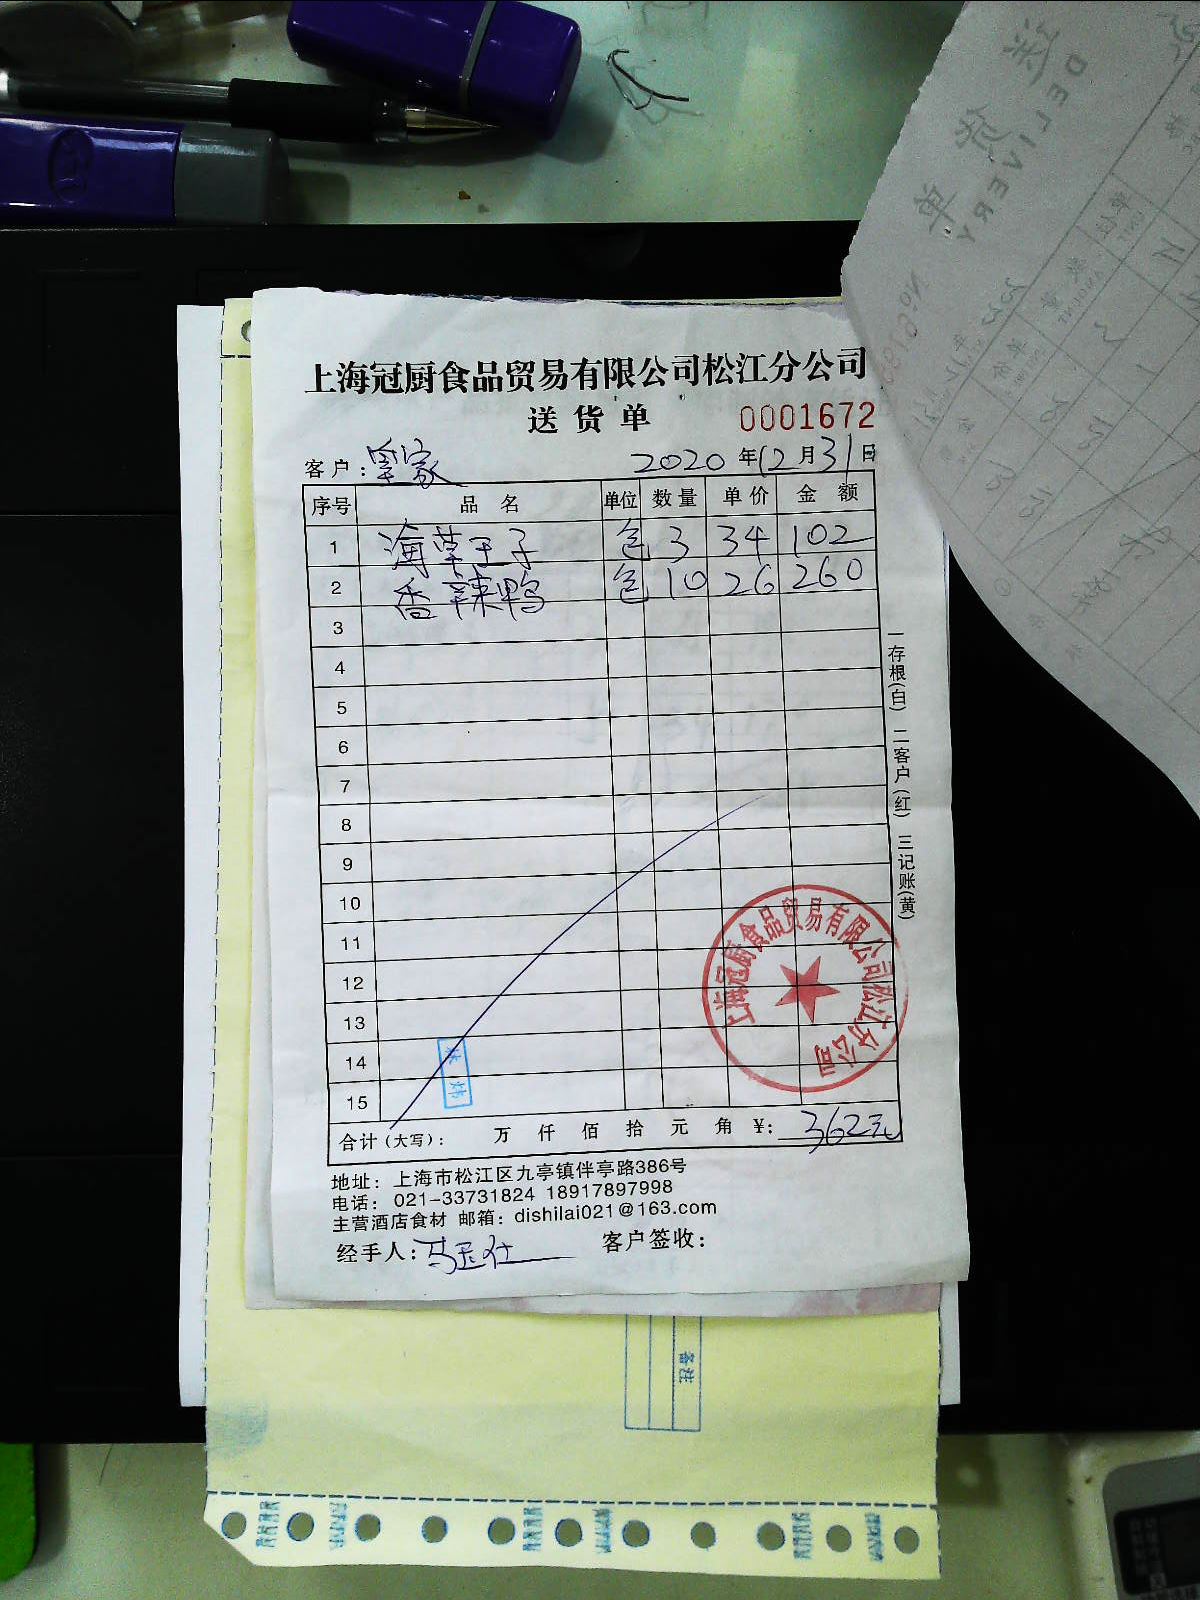 上海冠厨食品贸易有限公司松江分公司
送货单 0001672
客户: 2020年12月31日
序号 品名 单位 数量 单价 金额
1 海草王子 包 3 34 102
2 香辣鸭 包 10 26 260
3
4
5
6
7
8
9
10
11
12
13
14
15
合计(大写): 万 仟 佰 拾 元 角 ¥: 362元
地址: 上海市松江区九亭镇伴亭路386号
电话: 021-33731824 18917897998
主营酒店食材 邮箱: dishilai021@163.com
经手人: 客户签收:
一存根(白) 二客户(红) 三记账(黄)
上海冠厨食品贸易有限公司松江分公司
备注
DELIVERY